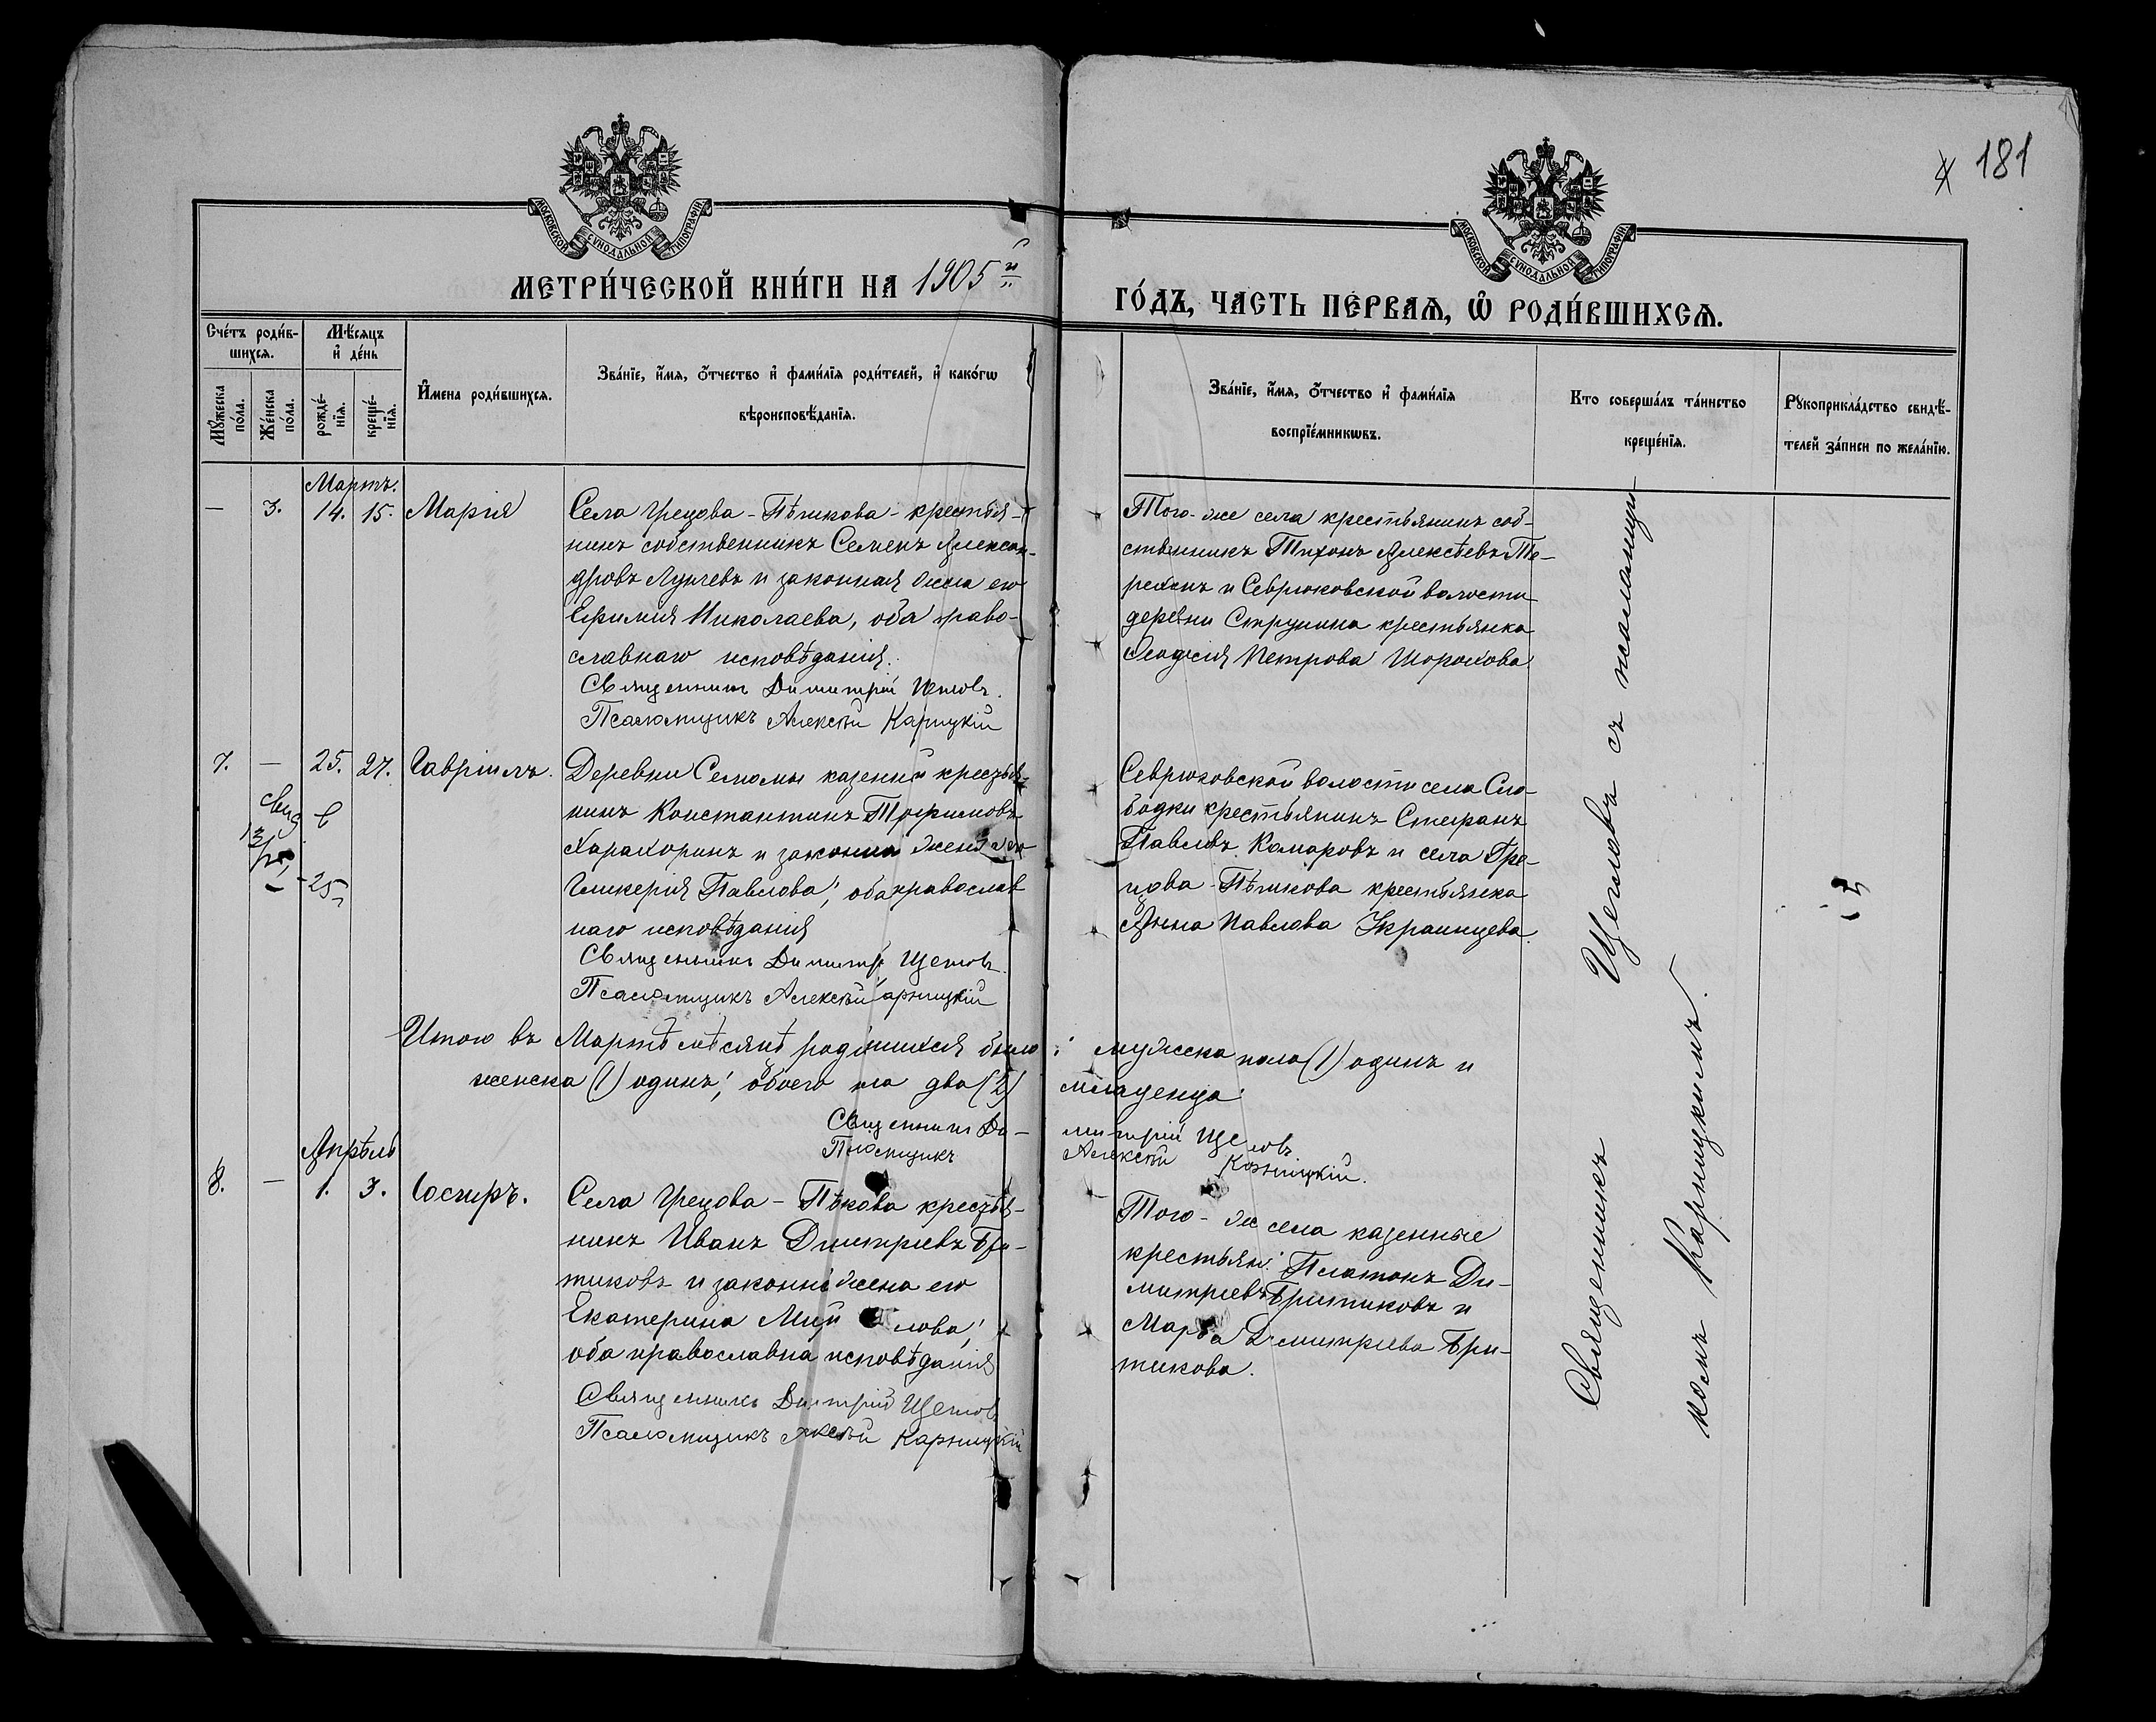 181
МОСКОВСКОЙ СУНОДАЛЬНОЙ ТИПОГРАФІИ
МОСКОВСКОЙ СУНОДАЛЬНОЙ ТИПОГРАФІИ
МЕТРИ́ЧЕСКОЙ КНИ́ГИ НА 1905й
ГО́ДЪ, ЧАСТЬ ПЕ́РВАѦ, Ѽ РОДИ́ВШИХСѦ.
Сче́тъ роди́в-
шихсѧ.
Мѣ́сѧцъ
и де́нь
Мꙋ́жеска
по́ла.
Же́нска
по́ла.
рожде́-
нїѧ.
креще́-
нїѧ.
И́мена роди́вшихсѧ.
Зва́нїе, и́мѧ, о́тчество и фами́лїѧ роди́телей, и како́гѡ
вѣроисповѣ́данїѧ.
Зва́нїе, и́мѧ, о́тчество и фами́лїѧ
воспрїе́мникѡвъ.
Кто соверша́лъ та́инство
креще́нїѧ.
Рꙋкоприкла́дство свидѣ́-
телей за́писи по жела́нїю.
Мартъ.
— 3. 14. 15. Марія
Села Грецова-Пѣшкова-крестья-
нинъ собственникъ Семенъ Алексан-
дровъ и законная жена его
Николаева, оба право-
славнаго исповѣданія.
Священникъ Димитрій
Псаломщикъ Алексѣй Карницкій
Того-же села крестьянинъ соб-
ственникъ Тихонъ Алексѣевъ Те-
рехинъ и Севрюковской волости
деревни Струкина крестьянка
Петрова Шорохова
7. — 25. 27. Гавріилъ.
Деревни казенный крестья-
нинъ Константинъ Трофимовъ
Харахоринъ и законная жена его
Гликерія Павлова; оба православ
наго исповѣданія
Священникъ Димитрій Щегловъ
Псаломщикъ Алексѣй Карницкій
Севрюковской волости села Сло-
бодки крестьянинъ Стефанъ
Павловъ Комаровъ и села Гре-
цова-Пѣшкова крестьянка
Анна Павлова Украинцева.
25
Итого въ Мартѣ мѣсяцѣ родившихся было: мужеска пола (1) одинъ и
женска (1) одинъ; обоего пола два (2) младенца
Священникъ Димитрій Щегловъ
Псаломщикъ Алексѣй Карницкій.
Апрѣль
8. — 1. 3. Іосифъ.
Села Грецова-Пѣшкова крестья-
нинъ Иванъ Дмитріевъ Бри-
тиковъ и законная жена его
Екатерина
оба православнаго исповѣданія
Священникъ Димитрій Щегловъ
Псаломщикъ Алексѣй Карницкій
Того-же села казенные
крестьяне: Платонъ Ди-
митріевъ Бритиковъ и
Марѳа Димитріева Бри-
тикова.
Священникъ Щегловъ съ псаломщи-
комъ Карницкимъ.